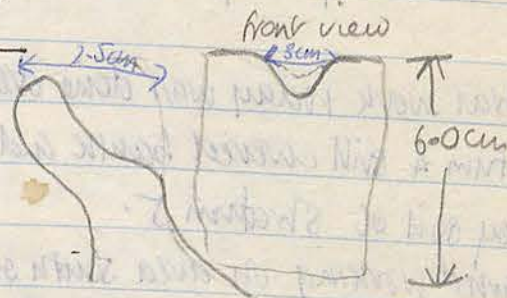 front view
7.5cm
3cm
6.0cm